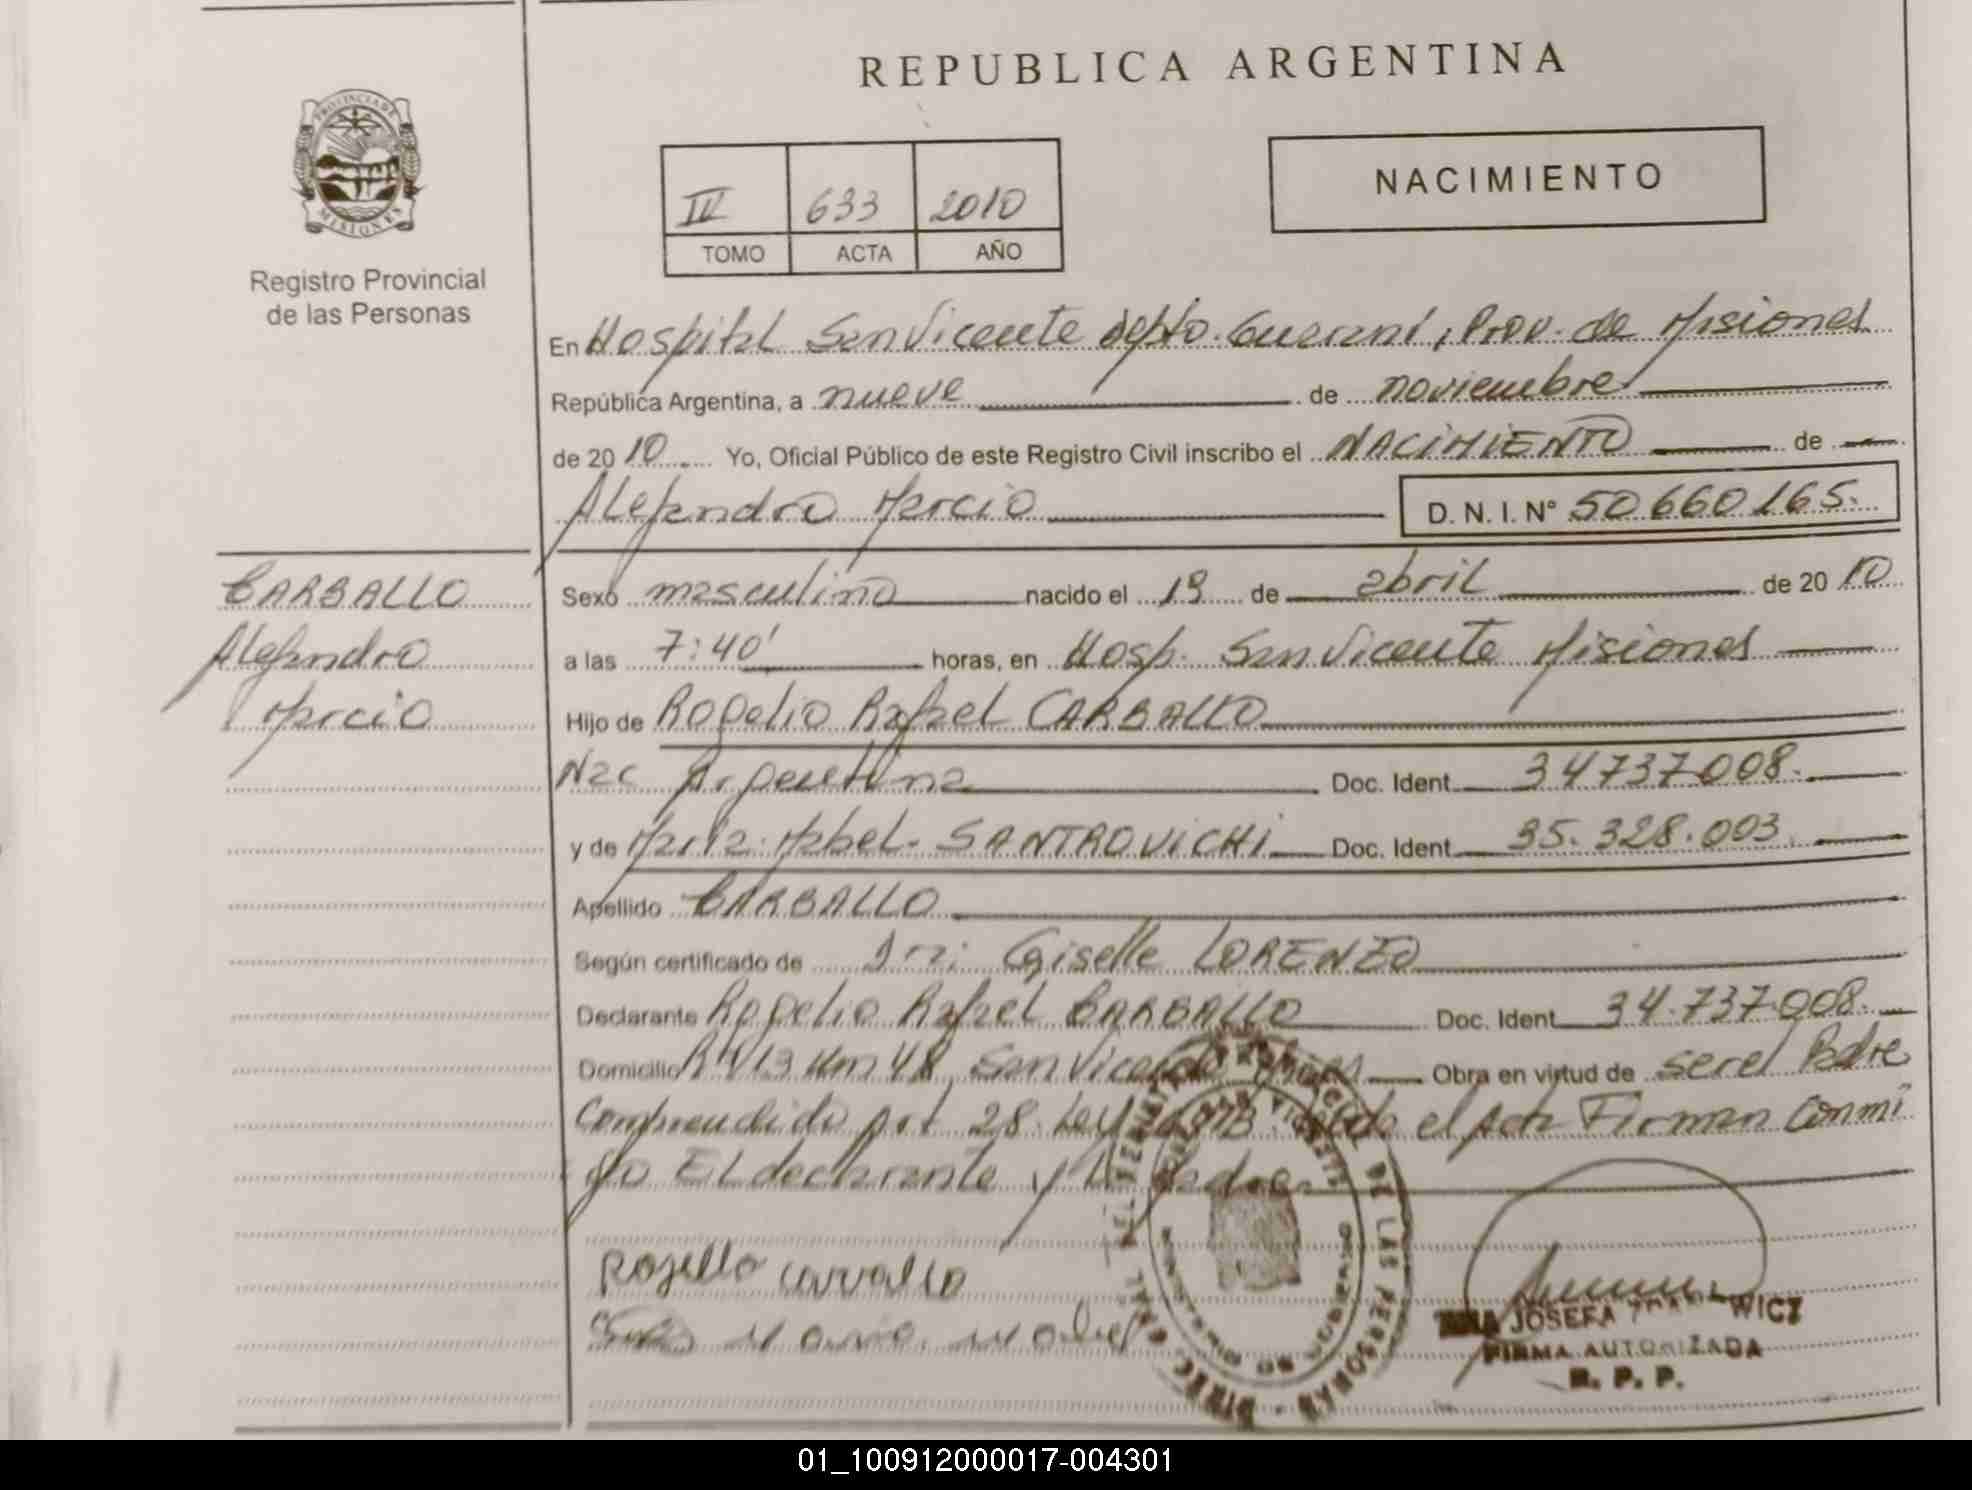 REPUBLICA ARGENTINA
PROVINCIA DE
MISIONES
Registro Provincial
de las Personas
IV 633 2010
TOMO ACTA AÑO
NACIMIENTO
En Hospital San Vicente depto. Guaraní, Prov. de Misiones
República Argentina, a nueve de noviembre
de 2010 Yo, Oficial Público de este Registro Civil inscribo el NACIMIENTO de
Alejandro Marcio D. N. I. Nº 50660165.
CARBALLO
Alejandro
Marcio
Sexo masculino nacido el 19 de abril de 2010
a las 7:40' horas, en Hosp. San Vicente Misiones
Hijo de Rogelio Rafael CARBALLO
Nac Argentina Doc. Ident. 34737008.
y de María Mabel. SANTROVICHI Doc. Ident. 35.328.003.
Apellido CARBALLO
Según certificado de Dra: Giselle LORENZO
Declarante Rogelio Rafael CARBALLO Doc. Ident. 34.737.008.
Domicilio Km 48 San Vicente Obra en virtud de ser el Padre
Comprendido Art 28. Ley el Acta Firman Conmi
go El declarante y la Madre
Rojelio carvallo
maria mabel
DE LAS PERSONAS
JOSEFA
FIRMA AUTORIZADA
R. P. P.
01_100912000017-004301